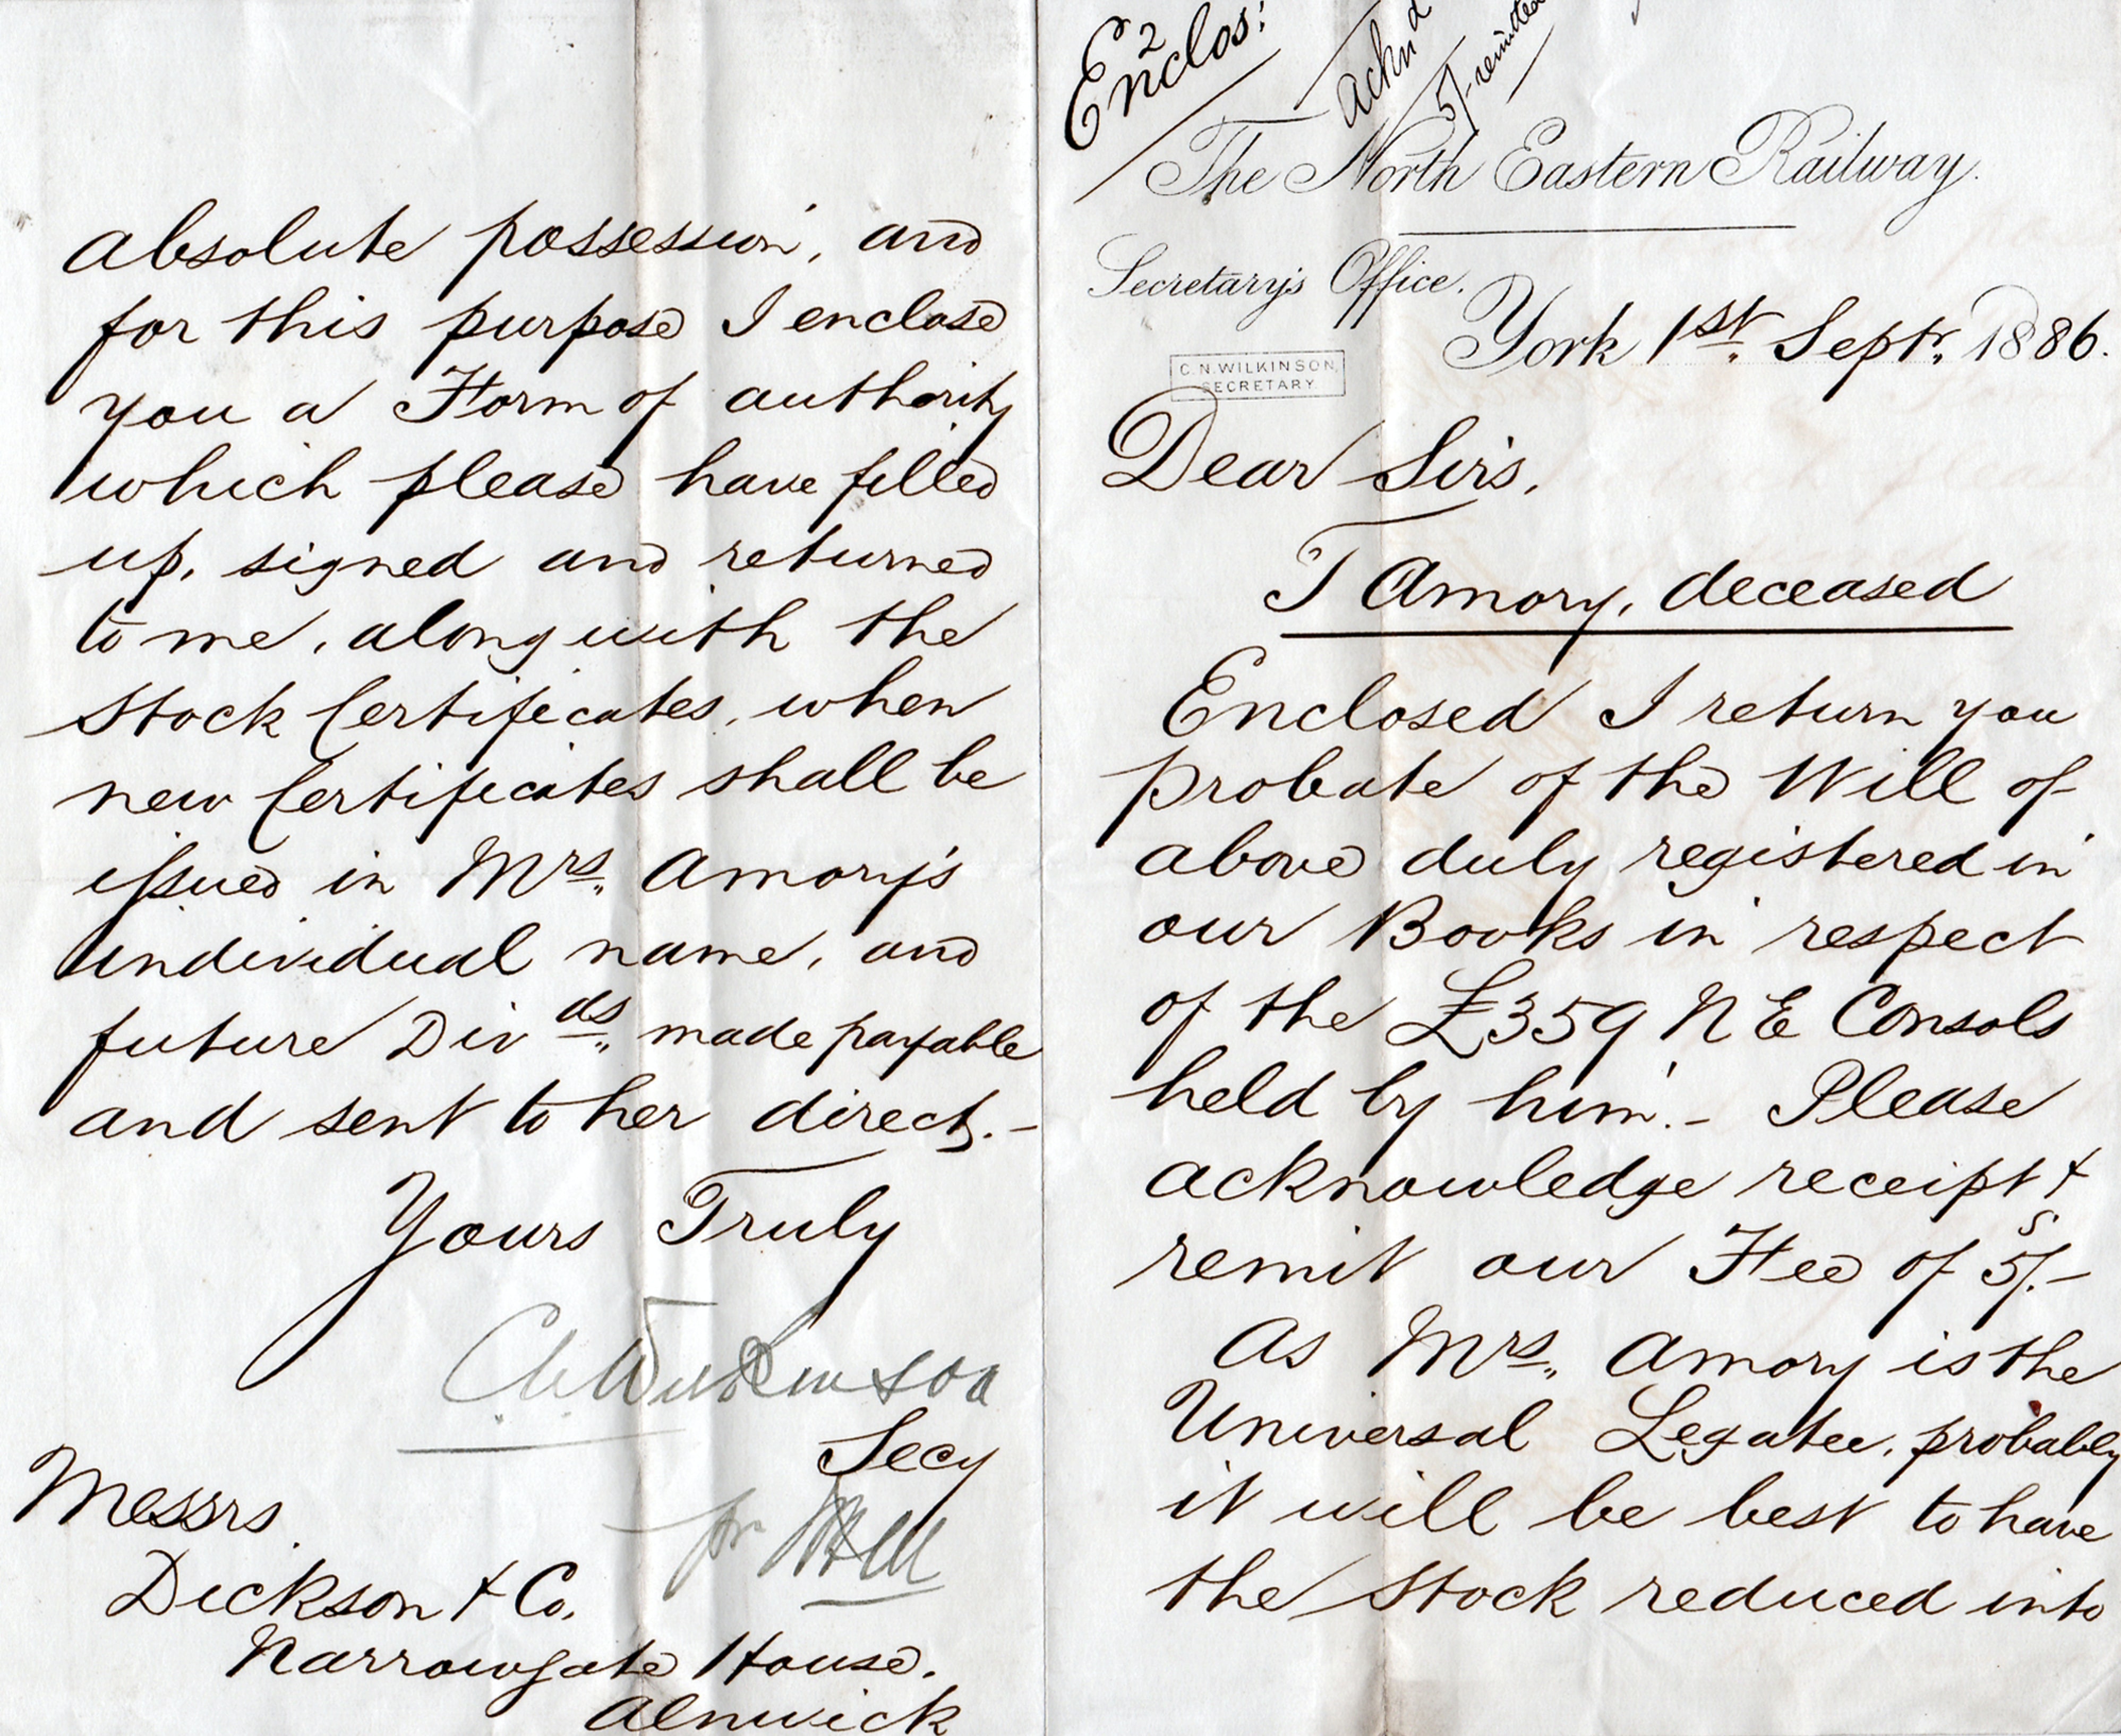 2
Enclos:
Ackn d
5/- remitted
The North Eastern Railway.
Secretary's Office.
York 1st Septr. 1886.
C.N.WILKINSON,
SECRETARY
Dear Sirs,
T Amory, deceased
Enclosed I return you
probate of the Will of
above duly registered in
our Books in respect
of the £359 N E Consols
held by him. - Please
acknowledge receipt +
remit our Fee of 5s/. -
As Mrs. Amory is the
Universal Legatee, probably
it will be best to have
the Stock reduced into
absolute possession, and
for this purpose I enclose
you a Form of authority
which please have filled
up, signed and returned
to me, along with the
Stock Certificates, when
new Certificates shall be
issued in Mrs. Amory's
individual name, and
future Divds. made payable
and sent to her direct. -
Yours Truly
C.N. Wilkinson
Secy
pr
Messrs
Dickson + Co.
Narrowgate House.
Alnwick